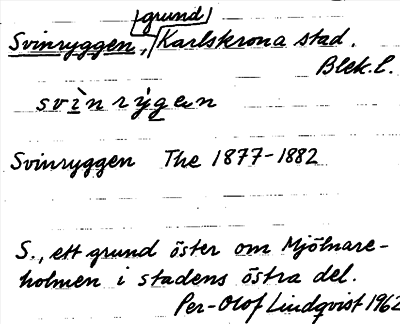 grund
Svinryggen, Karlskrona stad.
Blek.l.
svìnrýgen
Svinryggen The 1877-1882
S., ett grund öster om Mjölnare-
holmen i stadens östra del.
Per-Olof Lindqvist 1962